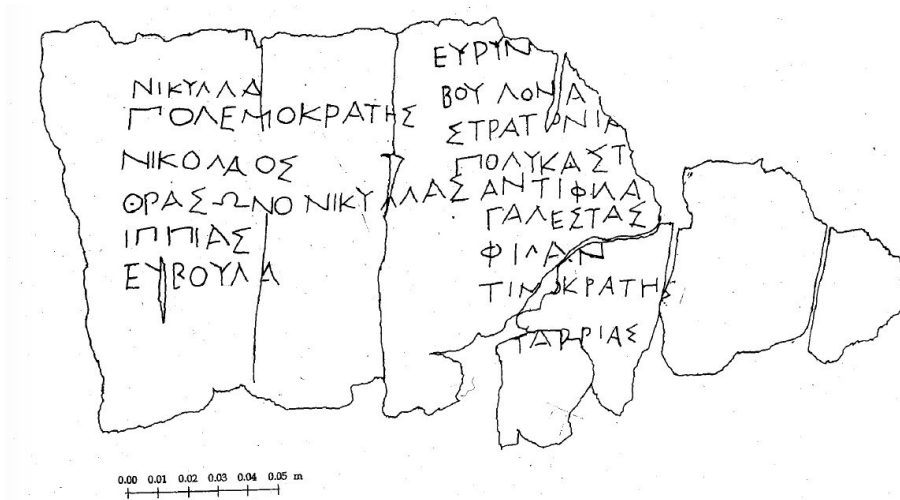 ΝΙΚΥΛΛΑ
ΠΟΛΕΜΟΚΡΑΤΗΣ
ΝΙΚΟΛΑΟΣ
ΘΡΑΣΩΝΟ ΝΙΚΥΛΛΑΣ
ΙΠΠΙΑΣ
ΕΥΒΟΥΛΑ
ΕΥΡΥΝ
ΒΟΥΛΟΝΙΑ
ΣΤΡΑΤΟΝΙΑ
ΠΟΛΥΚΑΣΤ
ΑΝΤΙΦΙΛΑ
ΓΑΛΕΣΤΑΣ
ΦΙΛΑΝ
ΤΙΜΟΚΡΑΤΗΣ
ΤΑΡΡΙΑΣ
0.00 0.01 0.02 0.03 0.04 0.05 m